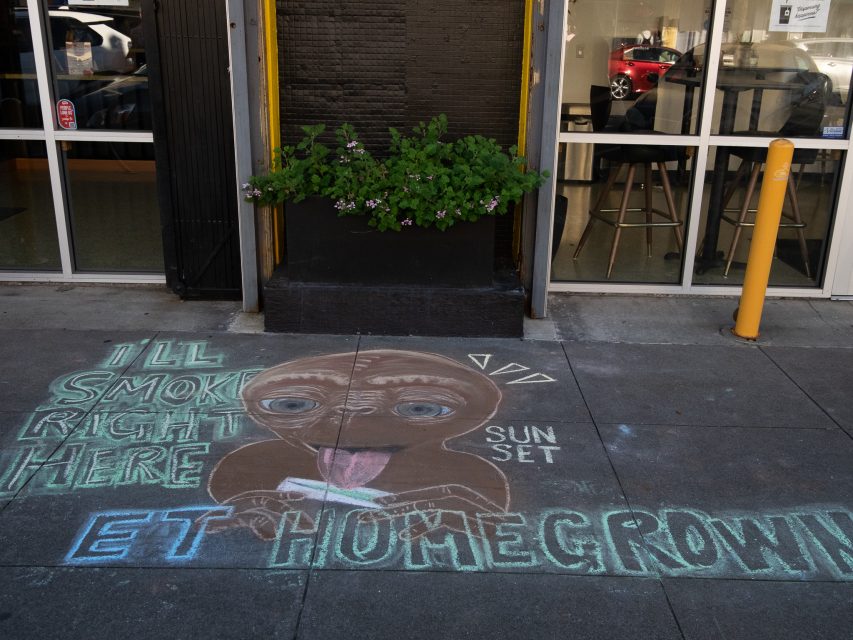 ILL
SMOKE
RIGHT
HERE
SUN
SET
ET HOMEGROWN